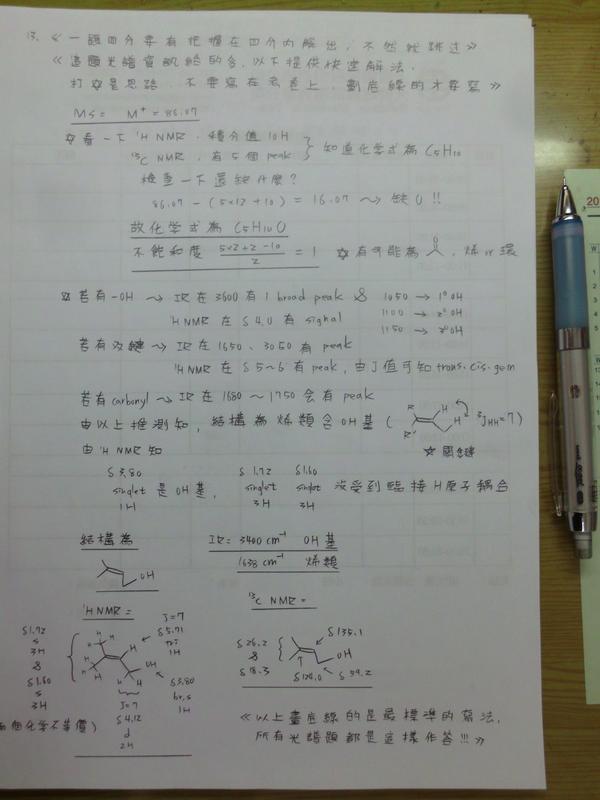 13. 《一題四分要有把握在四分內解出, 不然就跳过》
《這題光譜資訊給的多, 以下提供快速解法,
打☆是思路, 不要寫在考卷上, 劃底線的才要寫》
MS = M⁺ = 86.07
☆看一下 ¹H NMR, 積分值 10H
¹³C NMR, 有 5 個 peak } 知道化學式為 C₅H₁₀
檢查一下還缺什麼?
86.07 - (5×12 + 10) = 16.07 ⇝ 缺 O !!
故化學式為 C₅H₁₀O
不飽和度 (5×2+2-10)/2 = 1 ☆有可能為 O, 烯 or 環
☆若有 -OH ⇝ IR 在 3600 有 1 broad peak & 1050 → 1° OH
¹H NMR 在 δ 4.0 有 signal 1100 → 2° OH
1150 → 3° OH
若有双鍵 ⇝ IR 在 1650、3050 有 peak
¹H NMR 在 δ 5~6 有 peak, 由 J 值可知 trans. cis. gem
若有 carbonyl ⇝ IR 在 1680 ~ 1750 会有 peak
由以上推測知, 結構為烯類含 OH 基 ( R R' H H ³J_HH = 7 )
☆ 關鍵
由 ¹H NMR 知
δ 3.80 δ 1.72 δ 1.60
singlet 是 OH 基, singlet singlet 沒受到臨接 H 原子耦合
1H 3H 3H
結構為 IR = 3400 cm⁻¹ OH 基
1638 cm⁻¹ 烯類
OH
¹H NMR = ¹³C NMR =
J = 7
δ 1.72 δ 5.71
s tri
3H 1H
&
δ 1.60
s
3H
H H H H H H H H H OH
δ 3.80
br, s
1H
J = 7
δ 4.12
d
2H
個化學不等價)
δ 26.2 δ 135.1
&
δ 18.3 OH
δ 124.0 δ 59.2
《以上畫底線的是最標準的寫法,
所有光譜題都是這樣作答!!!》
20
W